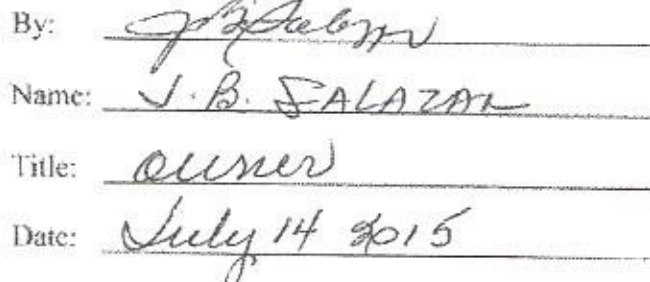 By: J. B. Salazar
Name: J. B. SALAZAR
Title: owner
Date: July 14 2015